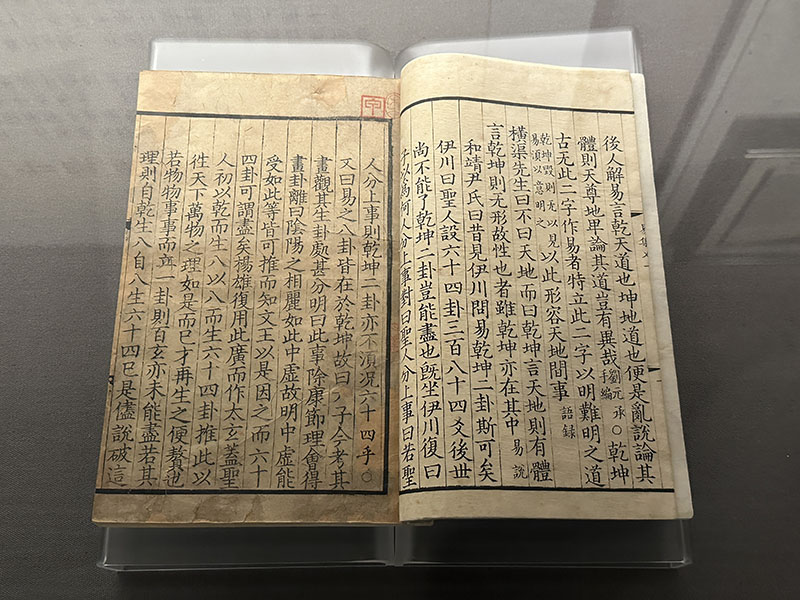 後人解易言乾天道也坤地道也便是亂說論其
體則天尊地卑論其道豈有異哉劉元承手編○乾坤
古无此二字作易者特立此二字以明難明之道
乾坤毀則无以見易須以意明之以此形容天地間事語錄
橫渠先生曰不曰天地而曰乾坤言天地則有體
言乾坤則无形故性也者雖乾坤亦在其中易說
和靖尹氏曰昔見伊川問易乾坤二卦斯可矣
伊川曰聖人設六十四卦三百八十四爻後世
尚不能了乾坤二卦豈能盡也既坐伊川復曰
子以為何人分上事對曰聖人分上事曰若聖
人分上事則乾坤二卦亦不須况六十四乎○
又曰易之八卦皆在於乾坤故曰子今考其
畫觀其生卦處甚分明曰此事除康節理會得
畫卦離曰陰陽之相麗如此中虛故明中虛能
受如此等皆可推而知文王以是因之而六十
四卦可謂盡矣楊雄復用此廣而作太玄蓋聖
人初以乾而生八以八而生六十四卦推此以
徃天下萬物之理如是而已才再生之便贅也
若物物事事而立一卦則百玄亦未能盡若其
理則自乾生八自八生六十四已是儘說破這